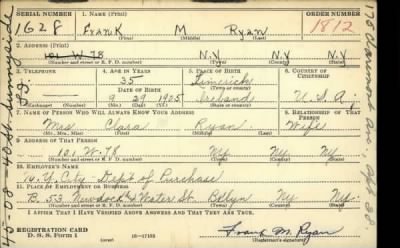 SERIAL NUMBER 1. NAME (Print) ORDER NUMBER
1628 Frank M Ryan 1812
2. ADDRESS (Print)
101 W. 78 N.Y N.Y
3. TELEPHONE 4. AGE IN YEARS 5. PLACE OF BIRTH 6. COUNTRY OF CITIZENSHIP
35 Limerick
DATE OF BIRTH (Town or county)
9 29 1905 Ireland U.S.A.
(Mo.) (Day) (Yr.) (State or country)
7. NAME OF PERSON WHO WILL ALWAYS KNOW YOUR ADDRESS 8. RELATIONSHIP OF THAT PERSON
Mrs Clara Ryan Wife
(Mr., Mrs., Miss) (First) (Middle) (Last)
9. ADDRESS OF THAT PERSON
101 W. 78 Ny Ny Ny
(Number and street or R. F. D. number) (Town) (County) (State)
10. EMPLOYER'S NAME
N.Y. City Dept of Purchase
11. PLACE OF EMPLOYMENT OR BUSINESS
Water St. Bklyn Ny
(Number and street or R. F. D. number) (Town) (County) (State)
I AFFIRM THAT I HAVE VERIFIED ABOVE ANSWERS AND THAT THEY ARE TRUE.
REGISTRATION CARD
D. S. S. Form 1 16—17105
Frank M. Ryan
(Registrant's signature)
40-08-40 St Sunnyside
170 Claremont Ave Apt